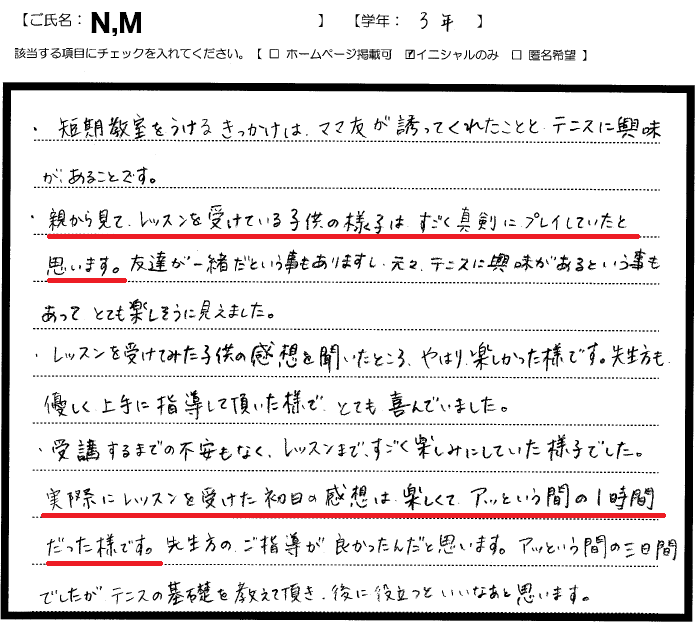 【ご氏名: N,M 】 【学年: 3年 】
該当する項目にチェックを入れてください。【 □ ホームページ掲載可 ☑イニシャルのみ □ 匿名希望 】
・短期教室をうけるきっかけは、ママ友が誘ってくれたことと、テニスに興味
があることです。
・親から見て、レッスンを受けている子供の様子は、すごく真剣にプレイしていたと
思います。友達が一緒だという事もありますし、元々、テニスに興味があるという事も
あってとても楽しそうに見えました。
・レッスンを受けてみた子供の感想を聞いたところ、やはり楽しかった様です。先生方も
優しく上手に指導して頂いた様で、とても喜んでいました。
・受講するまでの不安もなく、レッスンまで、すごく楽しみにしていた様子でした。
実際にレッスンを受けた初日の感想は、楽しくて、アッという間の1時間
だった様です。先生方のご指導が良かったんだと思います。アッという間の三日間
でしたがテニスの基礎を教えて頂き、後に役立つといいなあと思います。